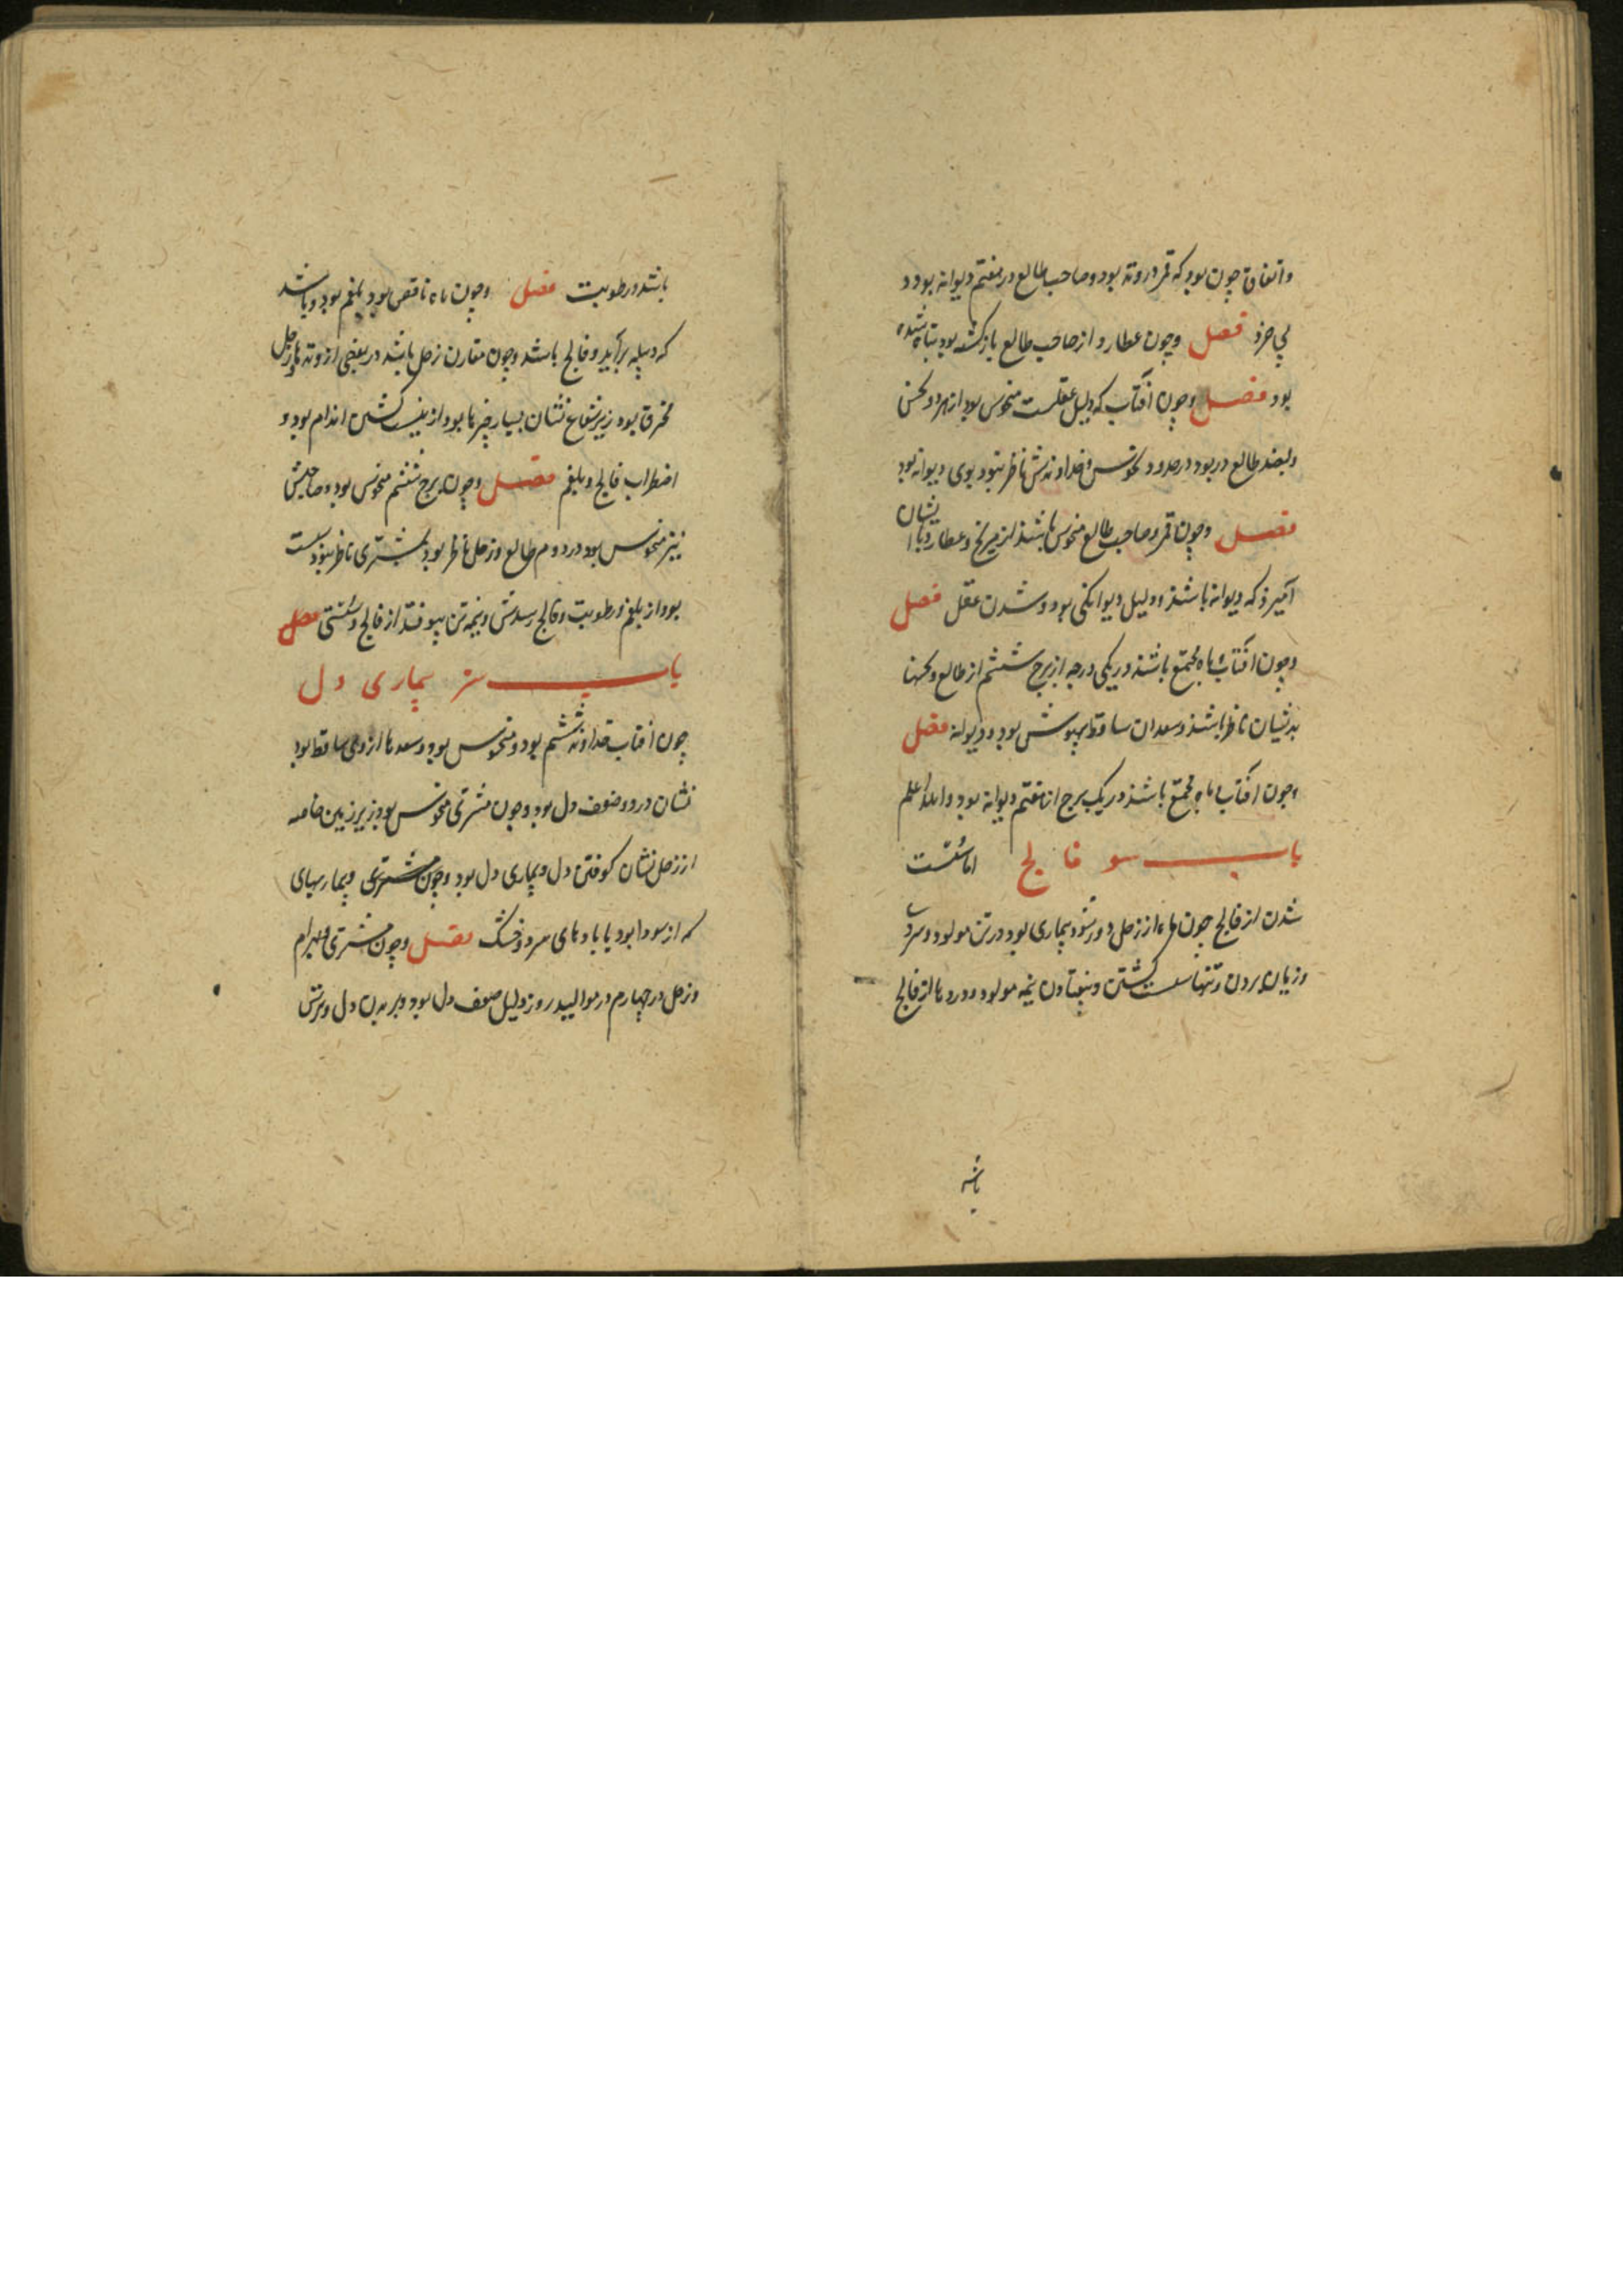 واتفاق چون بود که قمر در وتد بود و صاحب طالع در هفتم دیوانه بود و
بی خرد فصل وچون عطارد از صاحب طالع بازگشته بود تباه شده
بود فصل وچون آفتاب که دلیل عقلست منحوس بود از هر دو نحس
طالع در بود در حدود نحوس و خداوندش ناظر نبود بوی دیوانه بود
فصل وچون قمر و صاحب طالع منحوس باشند از مریخ و عطارد با ایشان
آمیزد که دیوانه باشد و دلیل دیوانکی بود و شدن عقل فصل
وچون آفتاب با ماه مجتمع باشند در یکی درجه از برج ششم از طالع و نحسها
بدیشان ناظر باشند و سعدان ساقط بیهوش بود و دیوانه فصل
وچون آفتاب با ماه مجتمع باشند در یک برج از هفتم دیوانه بود والله اعلم
باب و فالج اما سست
شدن از فالج چون ماه از زحل دور شود بیماری بود در تن مولود و سردی
وزیان بردن و تنها سست کشتن و بیفتادن نیمه مولود و دردها از فالج
باشد
باشد و رطوبت فصل وچون ماه ناقص بود بلغم بود و باشد
که دبیله برآید و فالج باشد وچون مقارن زحل باشد در بعضی از وتدها و زحل
محترق بود زیر شعاع نشان بسیار چیزها بود از نیست کشتن اندام بود و
اضطراب فالج و بلغم فصل وچون برج ششم منحوس بود و صاحبش
نیز منحوس بود در دوم طالع و زحل ناظر بود و مشتری ناظر نبود سست
بود از بلغم و رطوبت و فالج رسدش و نیمه تن بیوفتد از فالج و سستی فصل
باب ز بیماری دل
چون آفتاب خداوند ششم بود و منحوس بود و سعدها از وی ساقط بود
نشان درد و ضعف دل بود وچون مشتری منحوس بود زیر زمین خاصه
از زحل نشان کوفتن دل و بیماری دل بود وچون مشتری و بیماریهای
که از سودا بود یا بادهای سرد و خشک فصل وچون مشتری و بهرام
و زحل در چهارم در موالید روز دلیل ضعف دل بود و بریدن دل و ترس